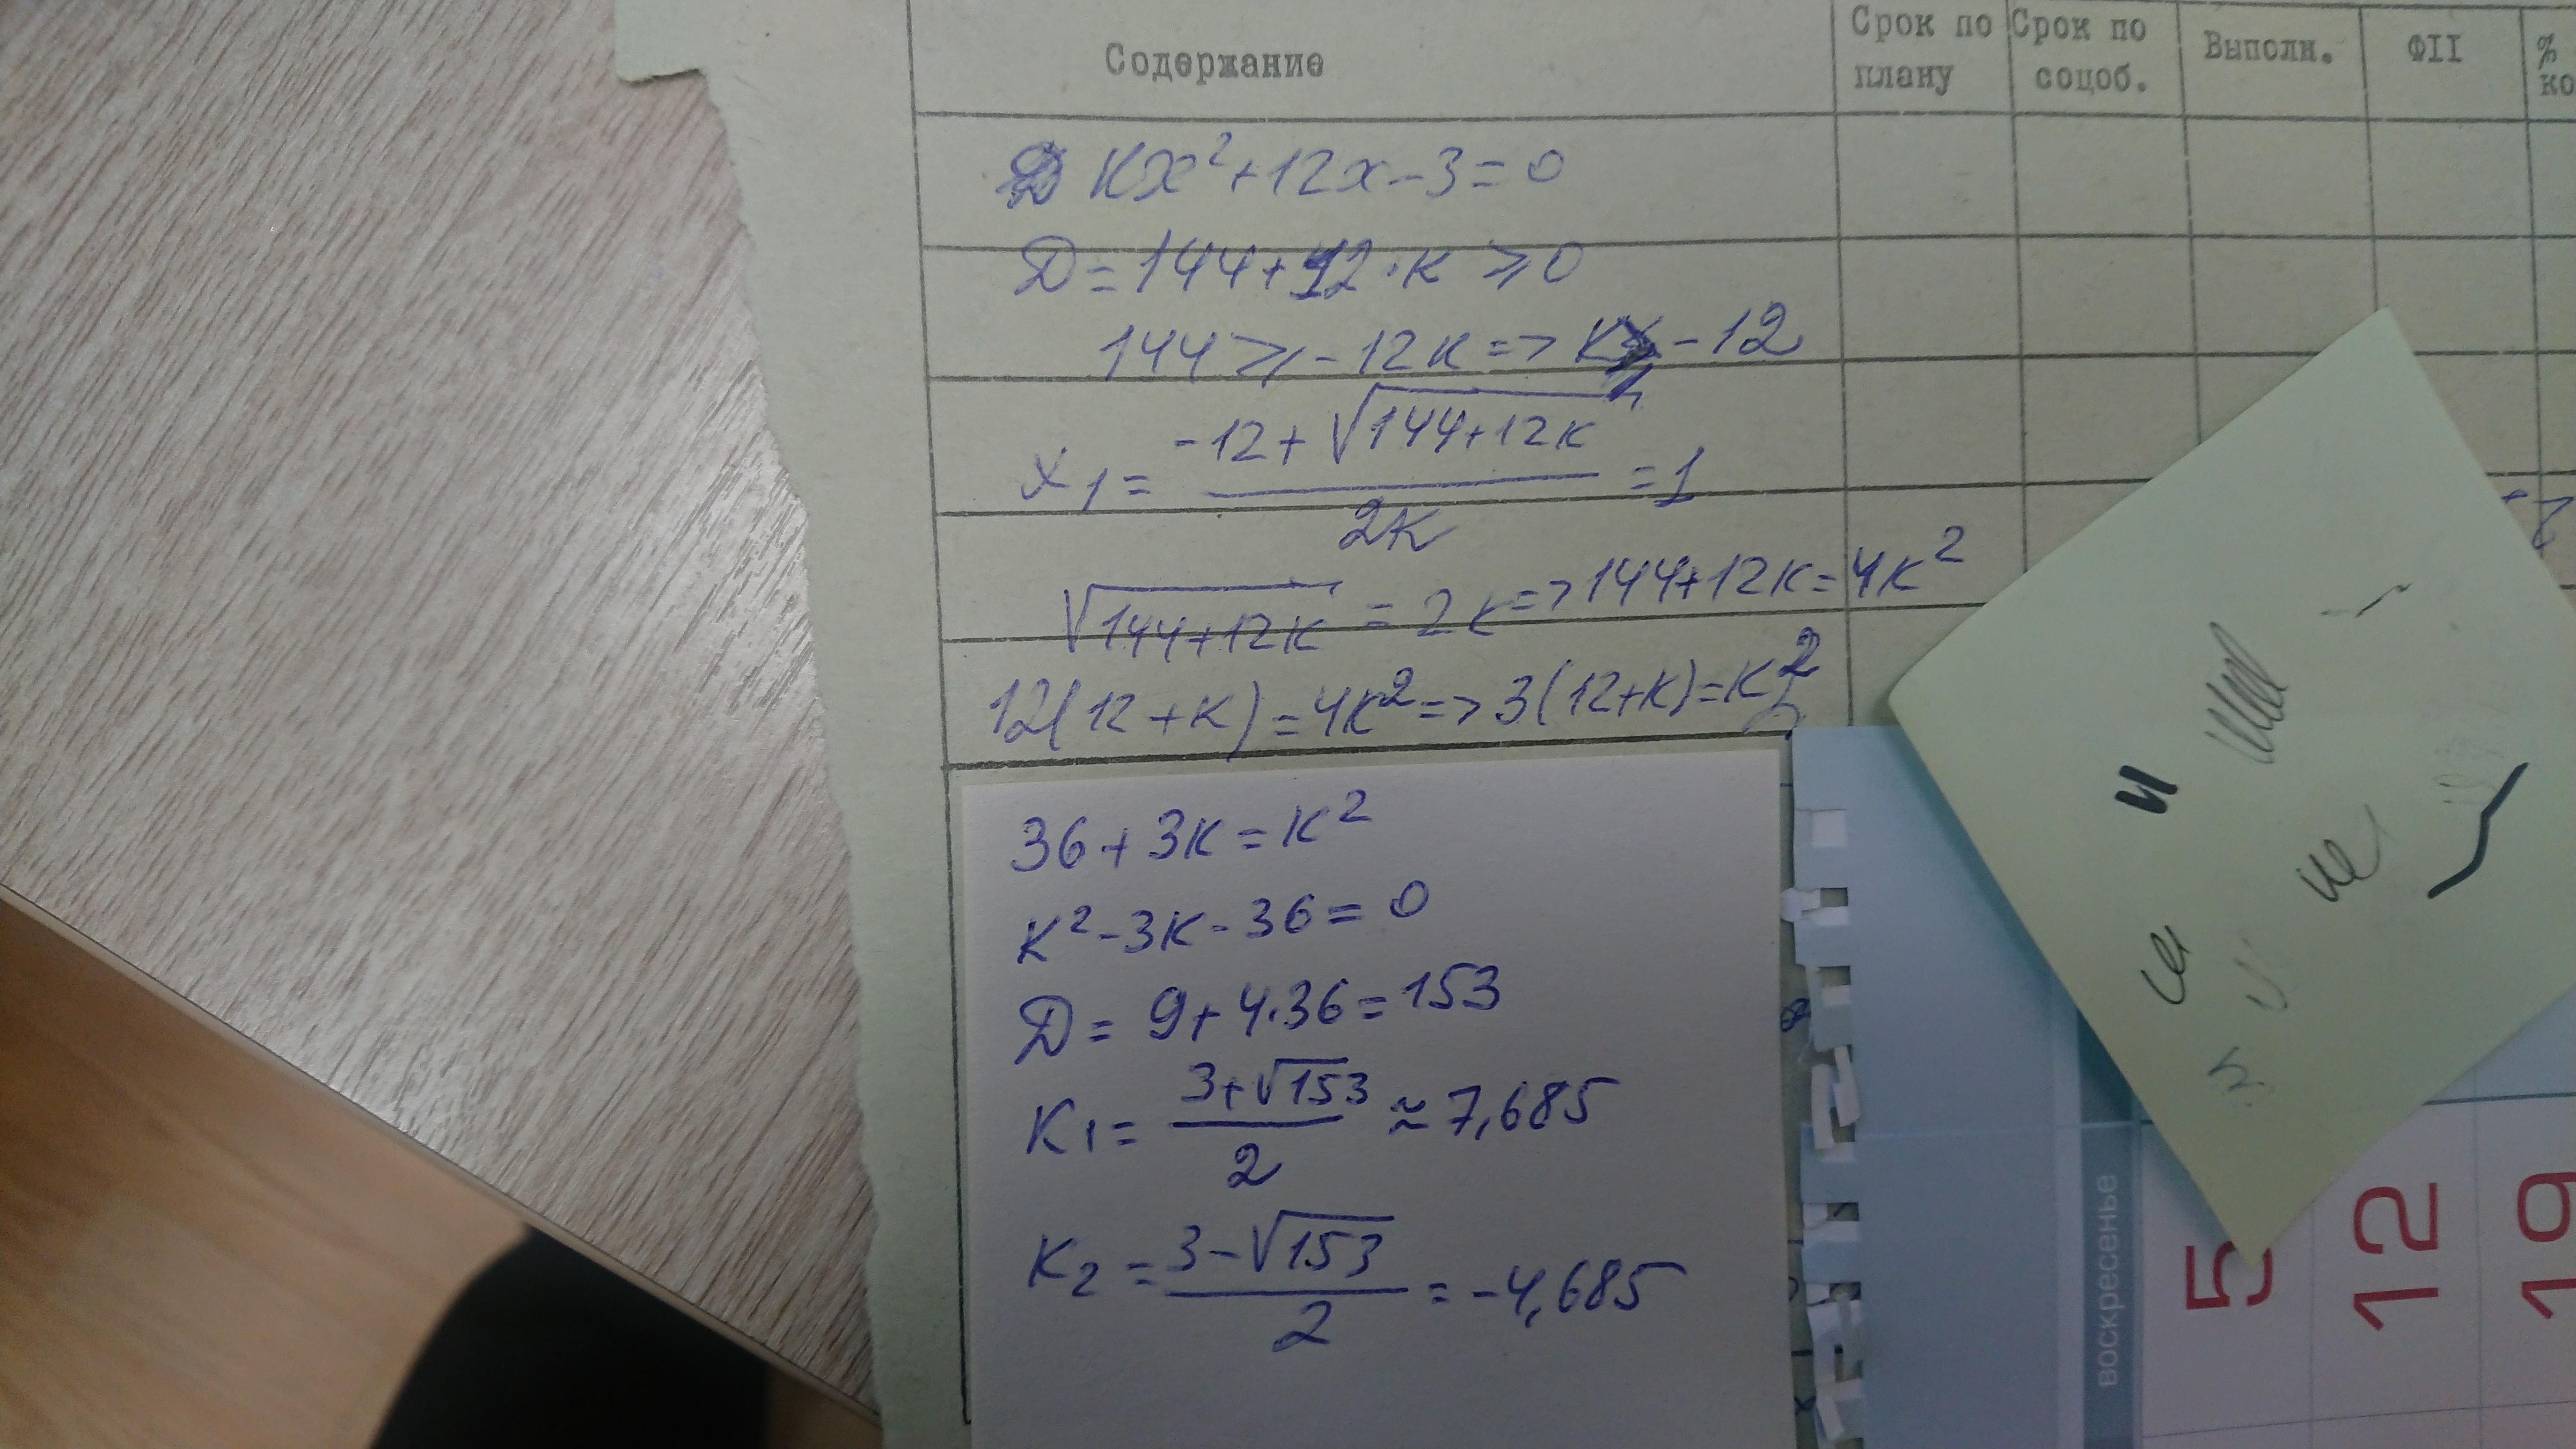 Содержание
Срок по плану
Срок по соцоб.
Выполн.
ФП
%
ко
Kx²+12x-3=0
Д=144+12·K≥0
144≥-12K=>K≥-12
x₁=(-12+√(144+12K))/2K=1
√(144+12K)=2K=>144+12K=4K²
12(12+K)=4K²=>3(12+K)=K²
36+3K=K²
K²-3K-36=0
Д=9+4·36=153
K₁=(3+√153)/2≈7,685
K₂=(3-√153)/2=-4,685
воскресенье
5
12
19